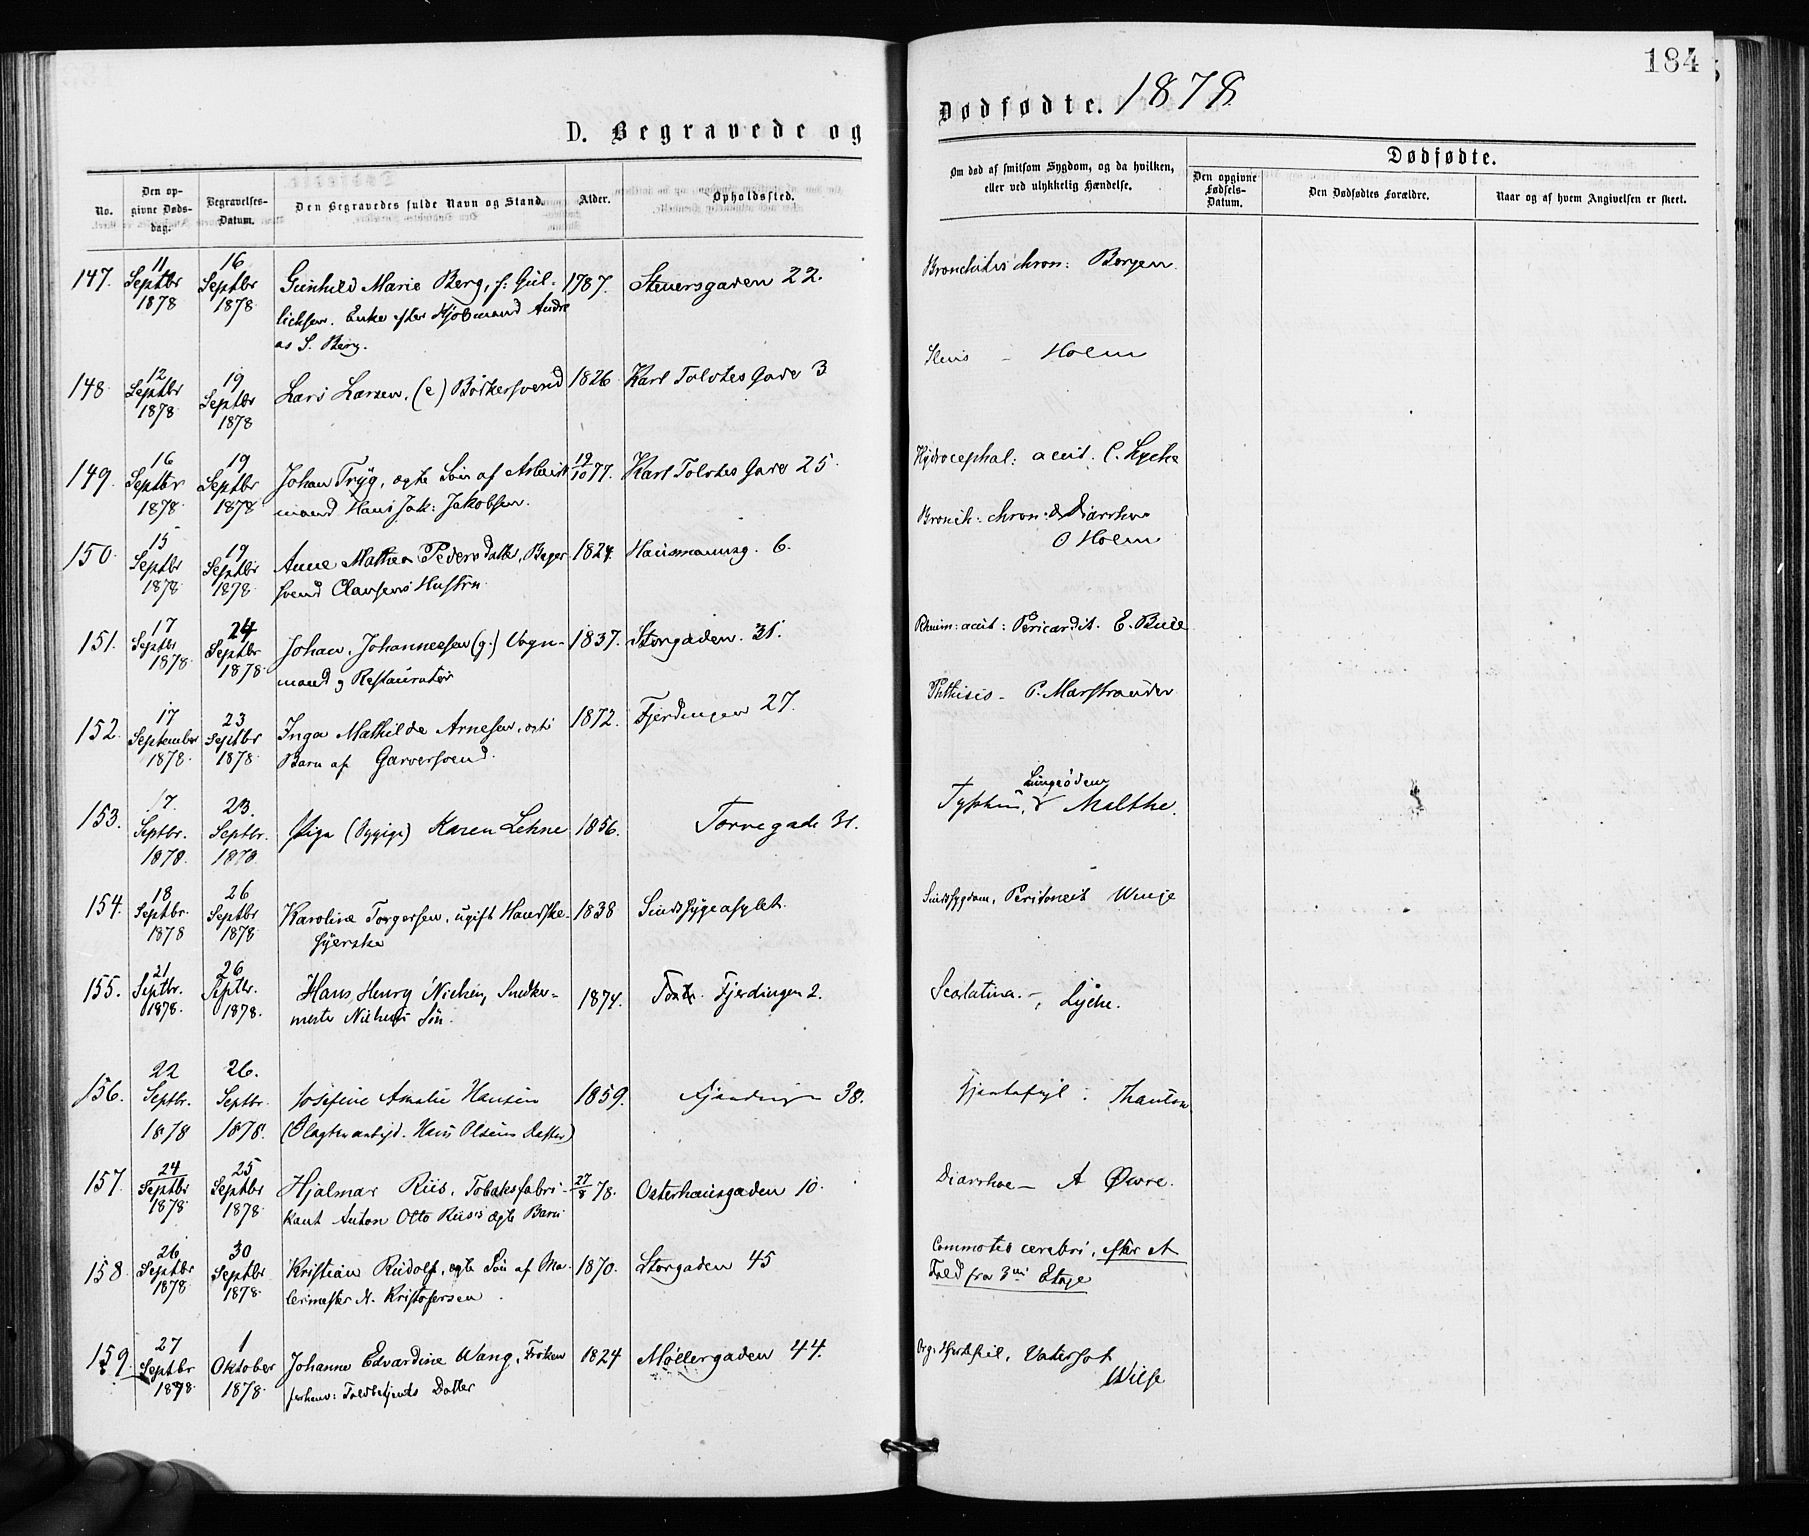 184
D. Begravede og
Dødfødte. 1878
No.
Den opgivne Dødsdag.
Begravelses-Datum.
Den Begravedes fulde Navn og Stand.
Alder.
Opholdssted.
Om død af smitsom Sygdom, og da hvilken, eller ved ulykkelig Hændelse.
Dødfødte.
Den opgivne Fødsels-Datum.
Den Dødfødtes Forældre.
Naar og af hvem Angivelsen er skeet.
147. 11 Septbr 1878 16 Septbr 1878 Gunhild Marie Berg, f: Gul- 1787. Stenersgaden 22. Bronchitis chron: Borgen
lichsen. Enke efter Kjøbmand Andre
as S. Berg.
148 12 Septbr 1878 19 Septbr 1878 Lars Larsen, (e) Bødkersvend 1826 Karl Tolvtes Gade 3 Ileus - Holm
149. 16 Septbr 1878. 19 Septbr 1878 Johan Tryg, ægte Søn af Arbeids 19/10 77. Karl Tolvtes Gade 25. Hydrocephal: acut. C. Lyche
mand Hans Jak: Jakobsen.
150. 15 Septbr 1878 19 Septbr 1878 Anne Mathea Pedersdatter, Bager 1824. Hausmannsg. 6. Bronch: chron: & Diarrhoe
svend Clausens Hustru O Holm
151. 17 Septbr 1878 24 Septbr 1878 Johan Johannessen (g.) Vogn- 1837. Storgaden 31. Rheum: acut: Pericardit. E. Bull
mand og Restauratør
152. 17 September 1878. 23 Septbr 1878 Inga Mathilde Arnesen, 1872. Fjerdingen 27. Phthisis - P. Marstrander
Barn af Garversvend.
153. 17. Septbr. 1878. 23. Septbr. 1878. Pige Karen Lehne 1856. Torvegade 31. Typhus, & Lungeødem Malthe.
154. 18 Septbr. 1878 26 Septbr 1878 Karoline Torgersen, ugift Handske- 1838 Sindssygeasylet. Sindssygdom, Peritoneit Winge
syerske
155. 21 Septbr. 1878. 26 Septbr. 1878. Hans Henry Nielsen, Snedker- 1874. Fjerdingen 2. Scarlatina. -, Lyche.
mester Nielsens Søn.
156. 22 Septbr. 1878 26. Septbr. 1878. Josefine Amalie Hansen 1859. Fjerdingen 38. Hjertefeil:
(Slagterarbejd. Hans Olsens Datter)
157. 24 Septbr 1878 25 Septbr 1878 Hjalmar Riis, Tobaksfabri- 27/8 78. Osterhausgaden 10. Diarrhoe - A Øvre.
kant Anton Otto Riis's ægte Barn
158. 26 Septbr 1878 30 Septbr 1878 Kristian Rudolf, ægte Søn af Ma- 1870. Storgaden 45 Commotio cerebri, efter et
lermester N. Kristofersen Fald fra 3die Etage
159. 27 Septbr 1878 1 Oktober 1878. Johanne Edvardine Wang, Frøken 1824 Møllergaden 44. Org: Hjertefeil, Vatersot
forhenv: Toldbetjents Datter Wilse